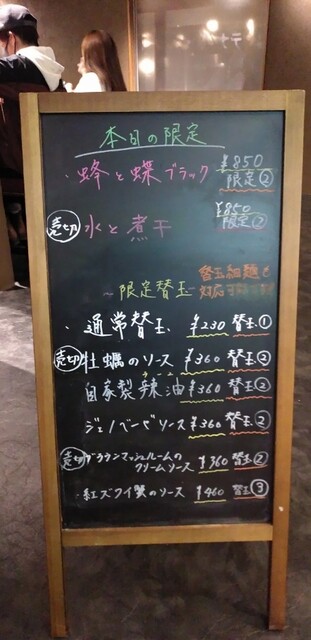 本日の限定
・蜂と蝶ブラック ¥850 限定②
売切 水と煮干 ¥850 限定②
替玉細麺も
～限定替玉～ 対応可能です
・通常替玉 ¥230 替玉①
売切 牡蠣のソース ¥360 替玉②
自家製辣油 ¥360 替玉②
ジェノベーゼソース ¥360 替玉②
売切 ブラウンマッシュルームの
クリームソース ¥360 替玉②
・紅ズワイ蟹のソース ¥460 替玉③